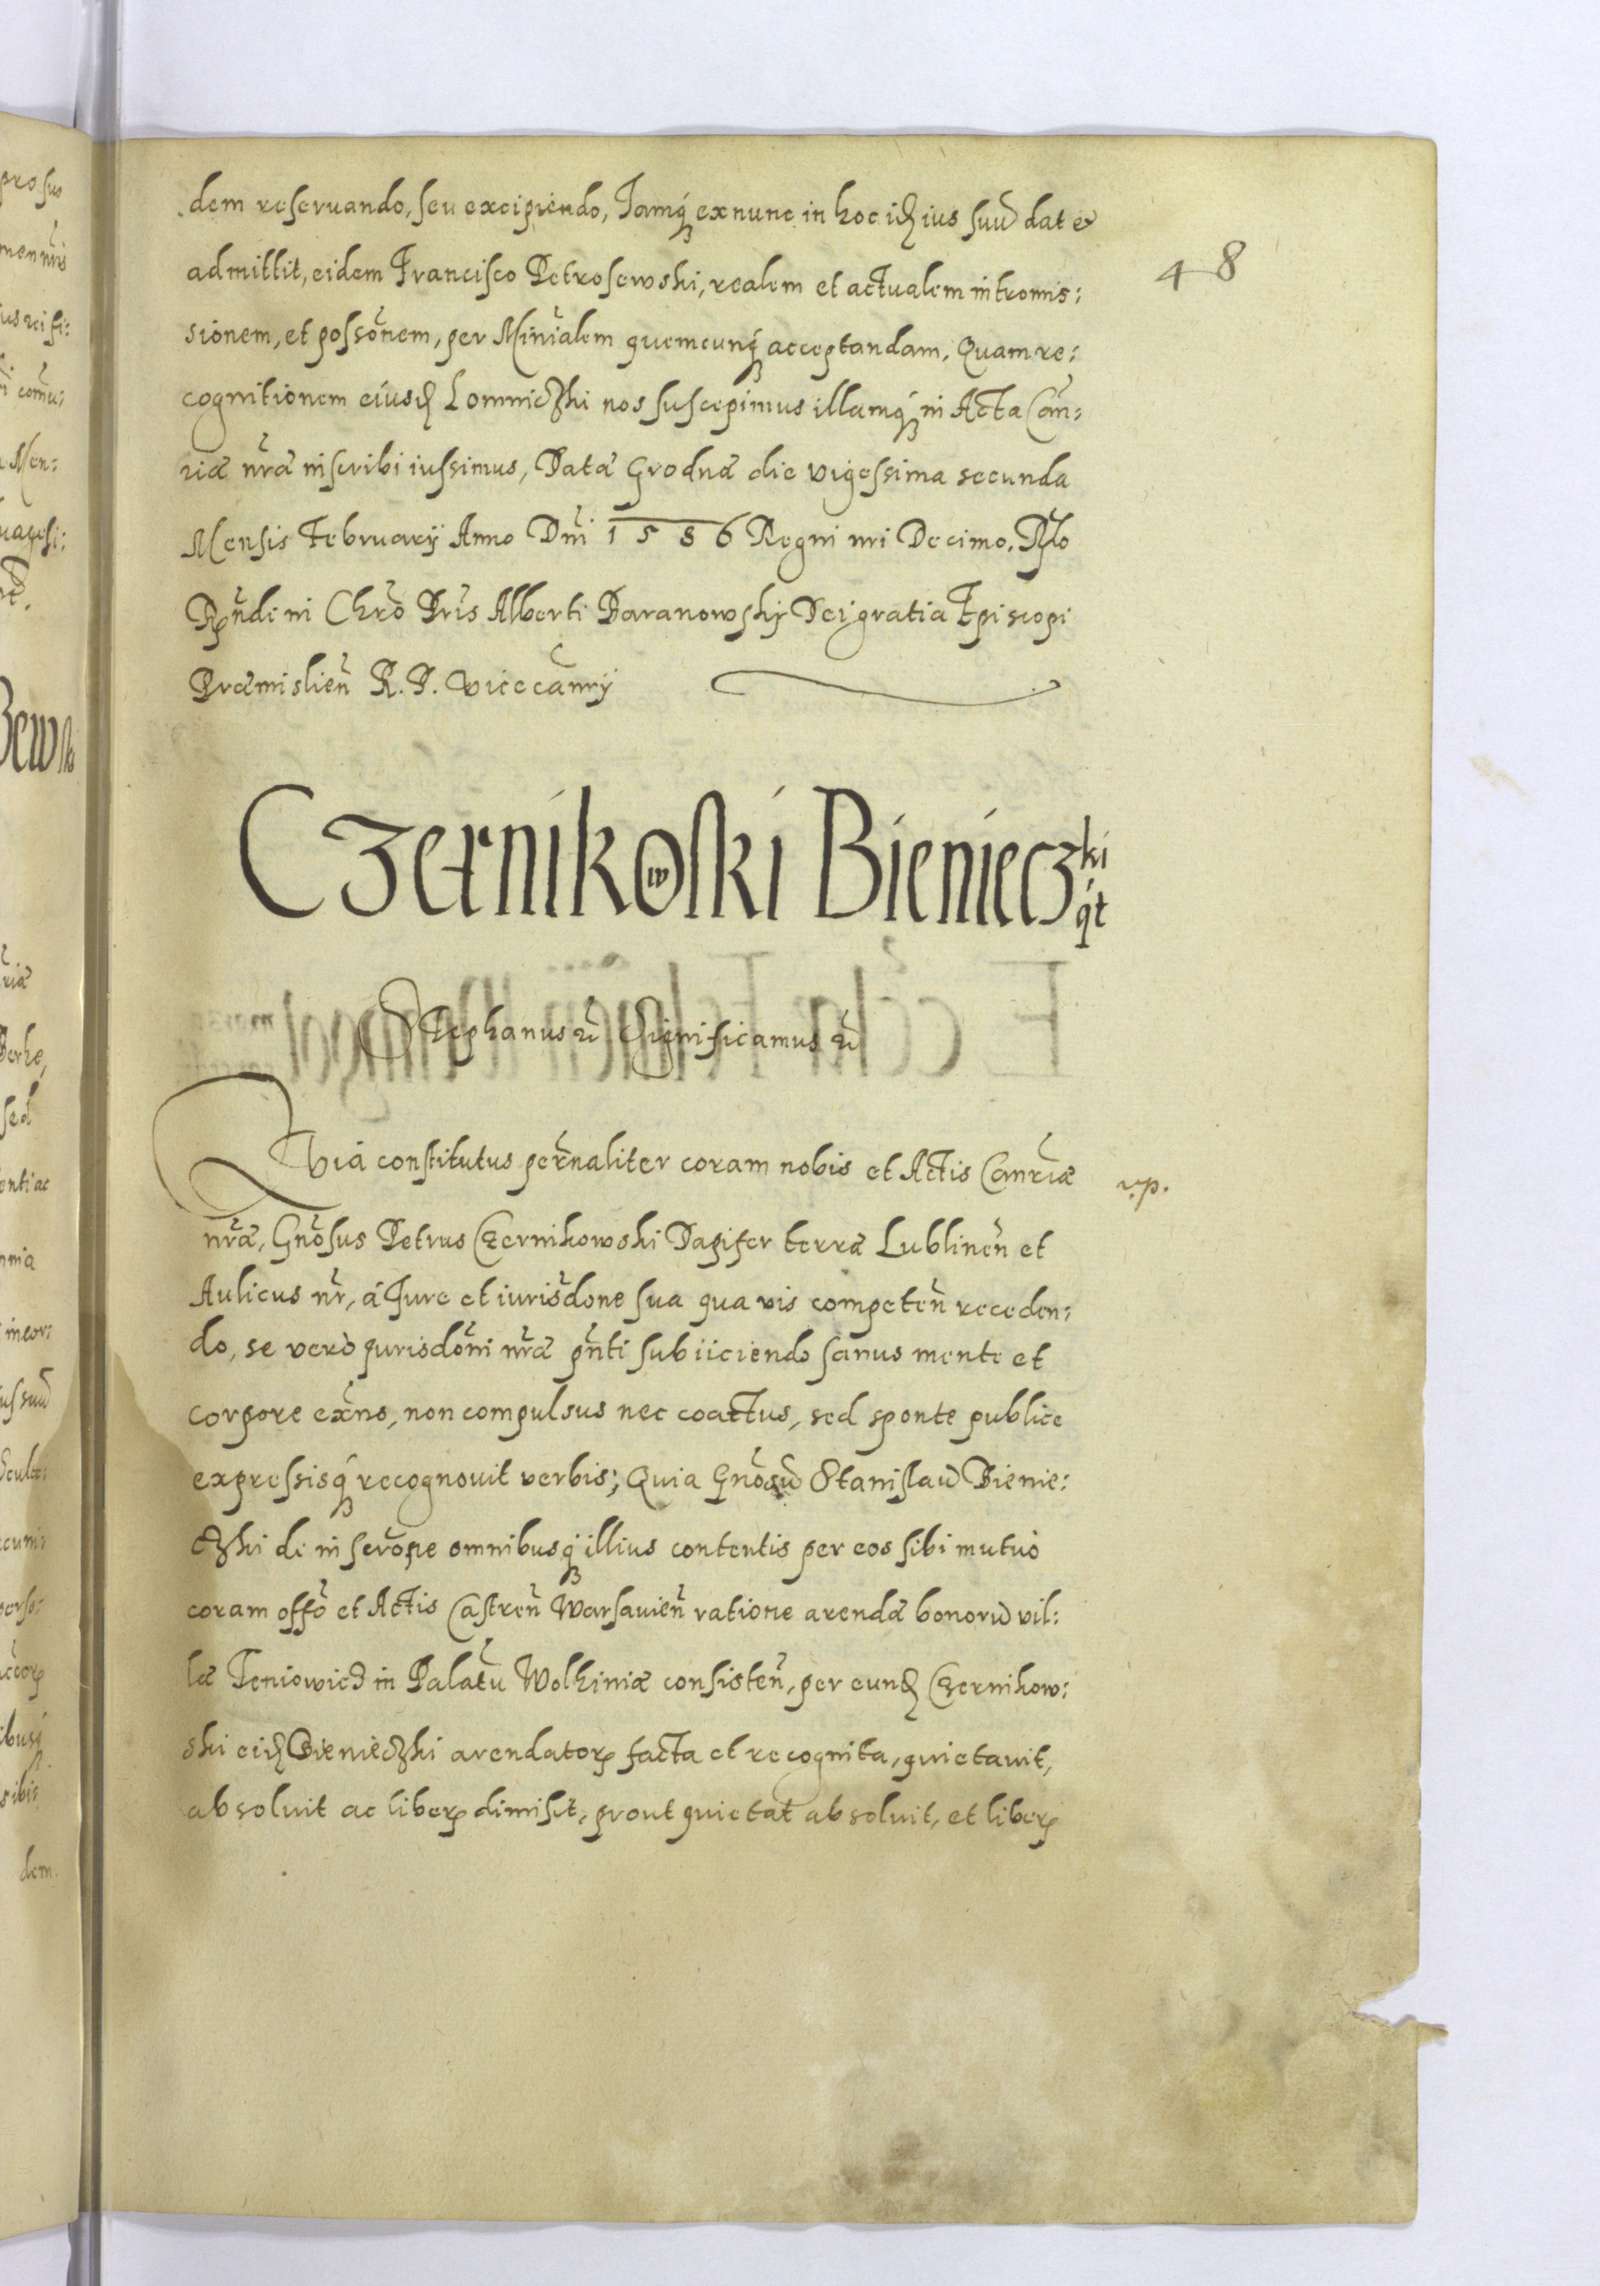 dem reseruando, seu excipiendo, Iamq́ꝫ ex nunc in hoc idꝫ ius suũ dat et
48
admittit, eidem Francisco Petrosewski, realem et actualem intromis:
sionem, et possoñem, per Miniãlem quemcunq́ꝫ acceptandam. Quam re:
cognitionem eiusdꝫ Lomniczki nos suscepimus illamq́ꝫ in Acta Cań:
riæ nr̃æ inscribi iussimus, Datæ Grodnæ die vigessima secunda
Mensis February Anno Dñi 1586 Regni nri Decimo. Rlõ
Rñdi in Chrõ Pris̃ Alberti Baranowsky Dei gratia Episcopi
Præmislien̄ R. P. Vicecãnry
Czernikowski Bienieczki
q́t
Stephanus r̃ Significamus r̃
Quia constitutus perñaliter coram nobis et Actis Canrĩæ
r.p.
nr̃æ, Gnõsus Petrus Czernikowski Dapifer terræ Lublinen̄ et
Aulicus nr̃, à Iure et iurisdõne sua qua vis competen̄ receden:
do, se verò Iurisdõni nr̃æ pñti subiiciendo sanus mente et
corpore exñs, non compulsus nec coactus, sed sponte publice
expressisq́ꝫ recognouit verbis; Quia Gnõsũ Stanislaũ Bienie:
czki de inscrõne omnibusq́ꝫ illius contentis per eos sibi mutuò
coram offõ et Actis Castren̄ Warsauien̄ ratione arendæ bonorũ vil:
læ Teniowicz in Palatũ Wolhiniæ consisten̄, per eundꝫ Czernikow:
ski eidꝫ Bienieczki arendatorꝫ facta et recognita, quietauit,
absoluit ac liberꝫ dimisit, prout quietat absoluit, et liberꝫ